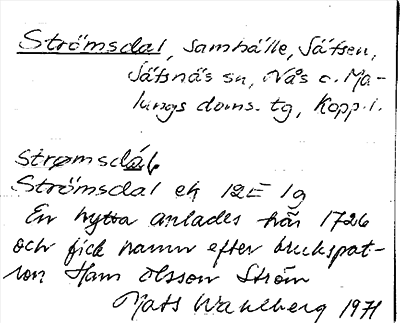 Strömsdal, samhälle, Säfsen,
Säfsnäs sn, Nås o. Ma-
lungs doms. tg, Kopp. l.
strømsdál
Strömsdal ek 12E 1g
En hytta anlades här 1726
och fick namn efter brukspat-
ron Hans Olsson Ström
Mats Wahlberg 1971